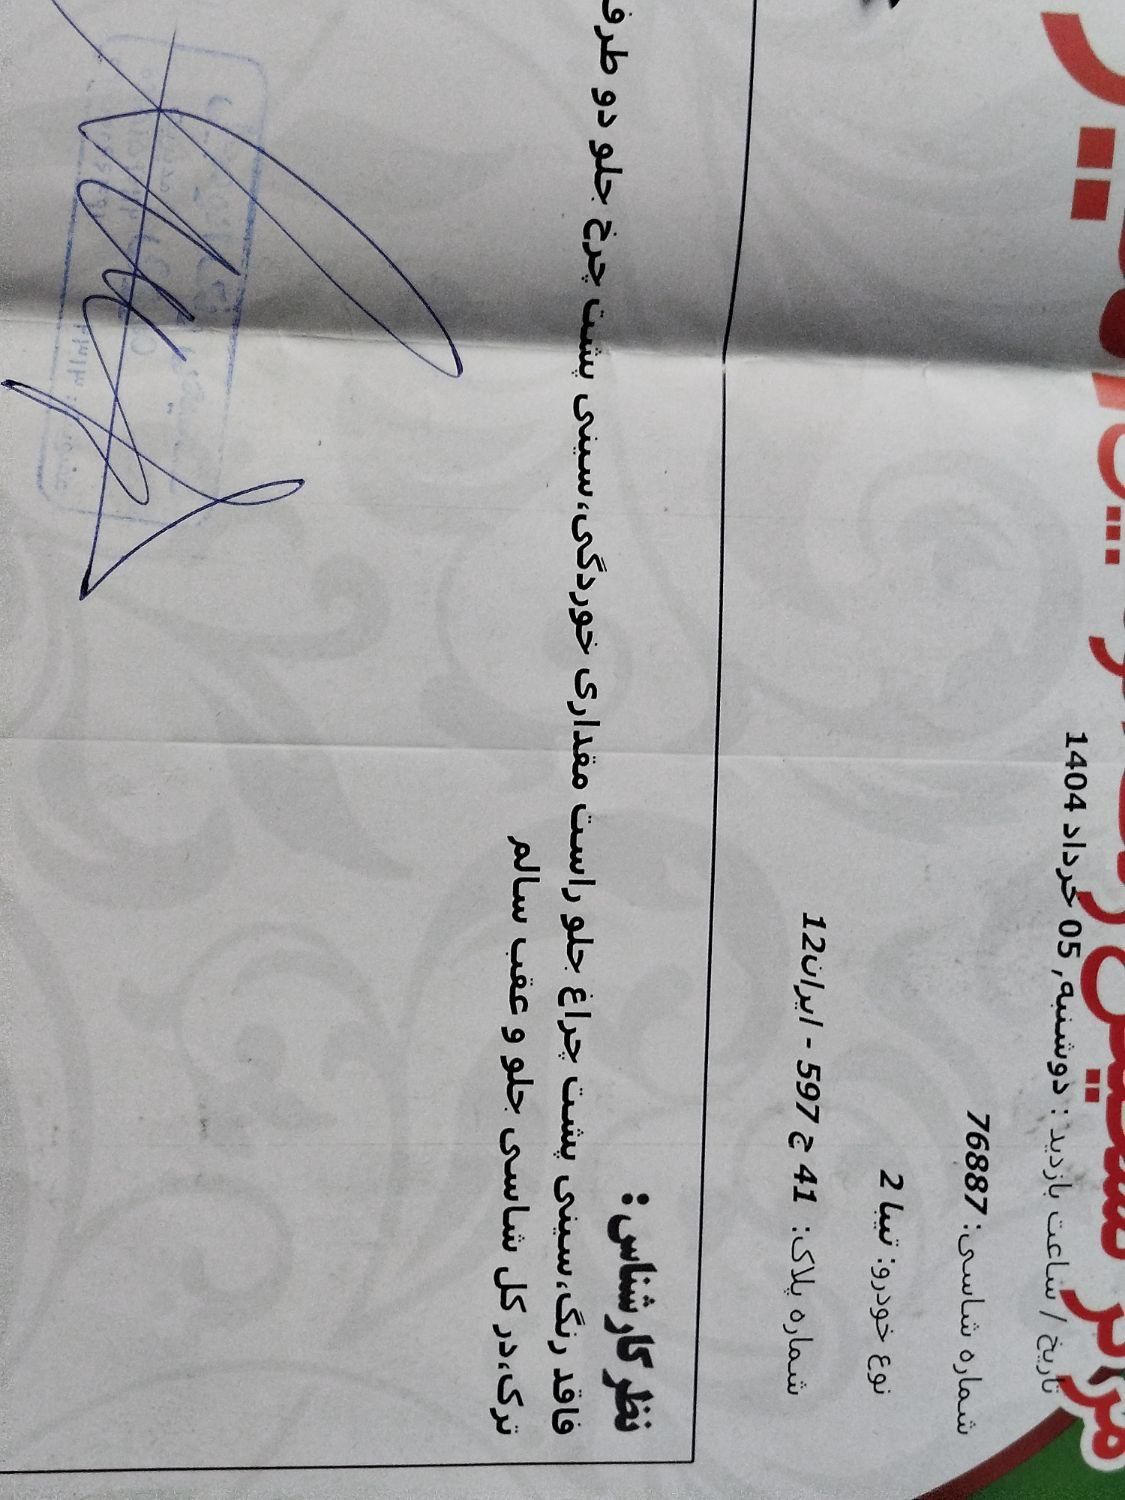 مرکز تشخیص رنگ
تاریخ / ساعت بازدید : دوشنبه, 05 خرداد 1404
شماره شاسی: 76887
نوع خودرو: تیبا 2
شماره پلاک: 41 ج 597 - ایران12
نظر کارشناس :
فاقد رنگ،سینی پشت چراغ جلو راست مقداری خوردگی،سینی پشت چرخ جلو دو طرف
ترک،در کل شاسی جلو و عقب سالم